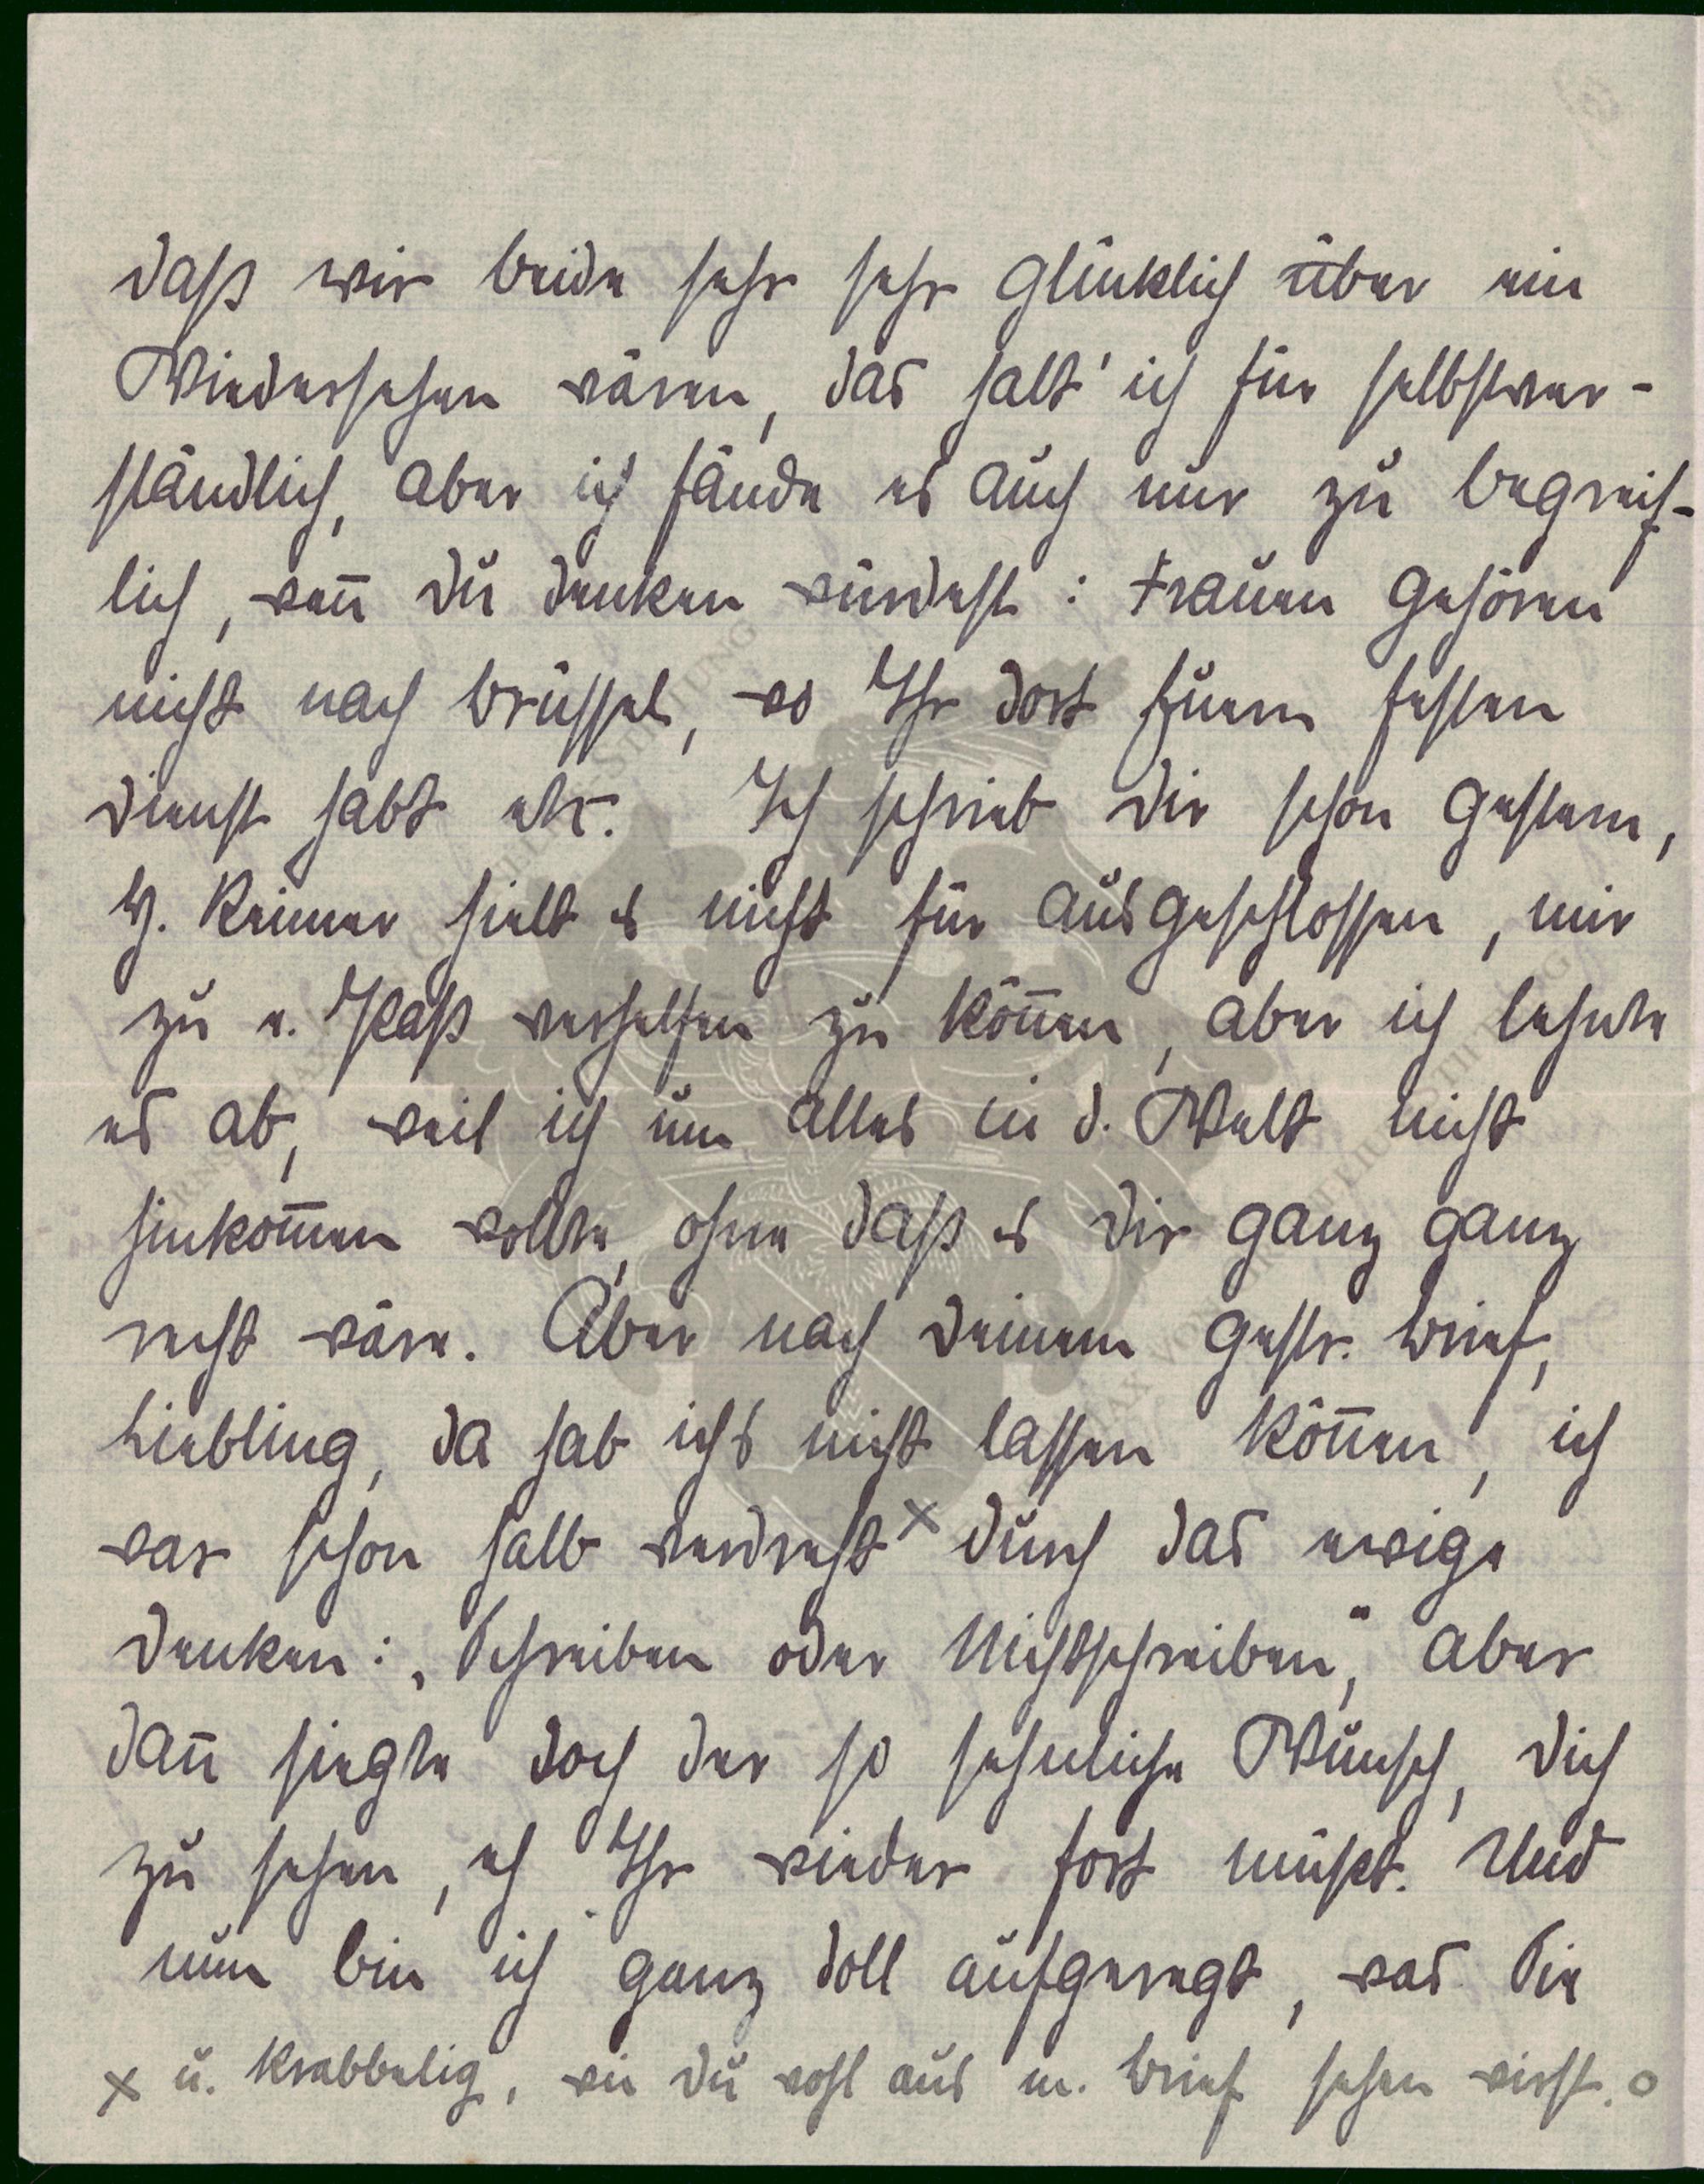 daß wir beide sehr sehr glücklich über ein
Wiedersehen wären, das halt' ich für selbstver-
ständlich, aber ich fände es auch nur zu begreif-
lich, wen̅ Du denken würdest: Frauen gehören
nicht nach Brüssel, wo Ihr dort Euern festen
Dienst habt etc. Ich schrieb Dir schon gestern,
H. Reimer hielt es nicht für ausgeschlossen, mir
zu e. Paß verhelfen zu kön̅en, aber ich lehnte
es ab, weil ich um alles in d. Welt nicht
hinkom̅en wollte, ohne daß es Dir ganz ganz
recht wäre. Aber nach Deinem gestr. Brief,
Liebling, da hab ich's nicht lassen kön̅en, ich
war schon halb verdreht × durch das ewige
Denken: „Schreiben oder Nichtschreiben", aber
dan̅ siegte doch der so sehnliche Wunsch, Dich
zu sehen, eh Ihr wieder fort müßt. Und
nun bin ich ganz doll aufgeregt, was Sie
× u. krabbelig, wie Du wohl aus m. Brief sehen wirst. o
VON
STIFTUNG